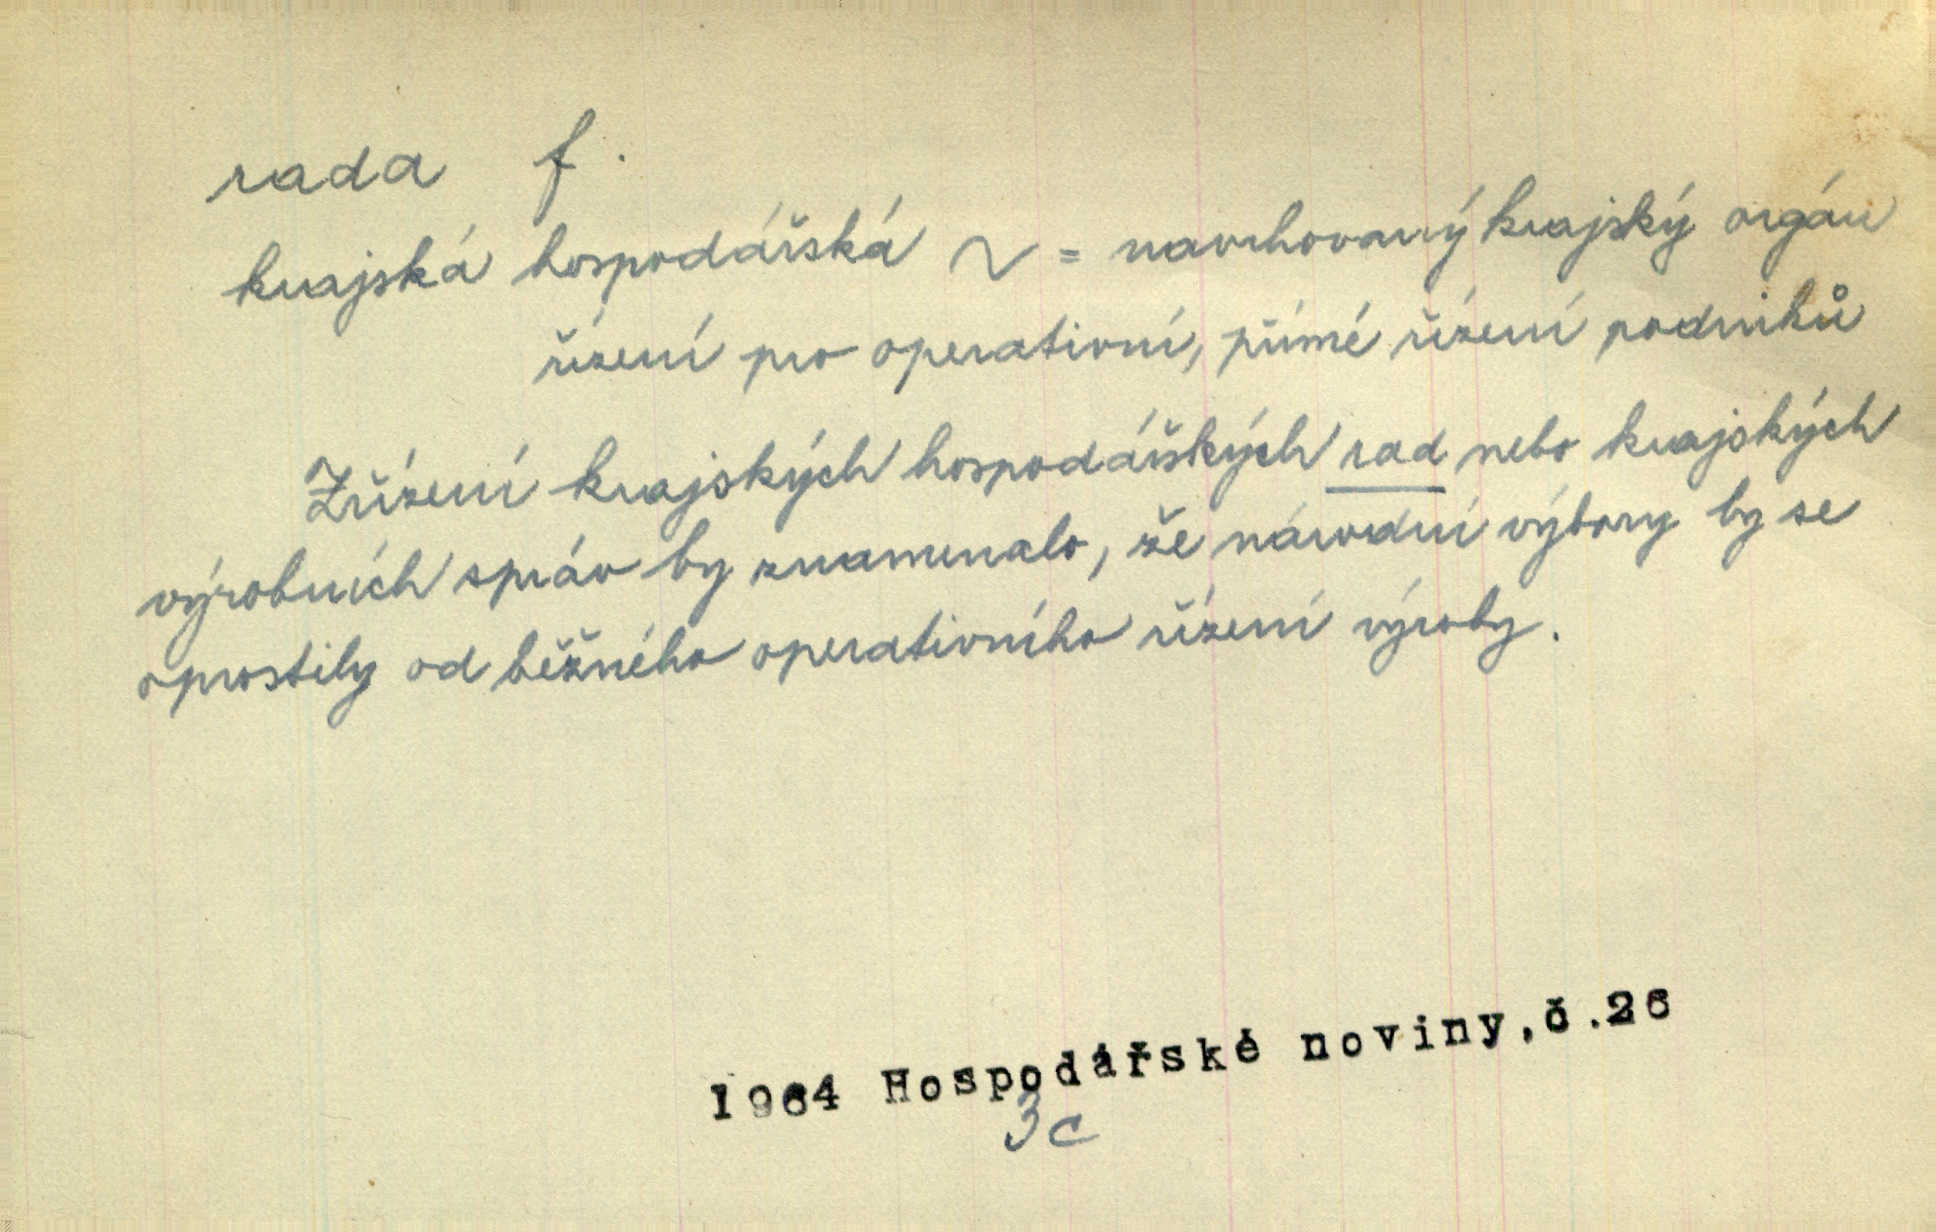 rada f.
krajská hospodářská ~ = navrhovaný krajský orgán
řízení pro operativní, přímé řízení podniků
Zřízení krajských hospodářských rad nebo krajských
výrobních správ by znamenalo, že národní výbory by se
oprostily od běžného operativního řízení výroby.
1964 Hospodářské noviny,č.26
3c